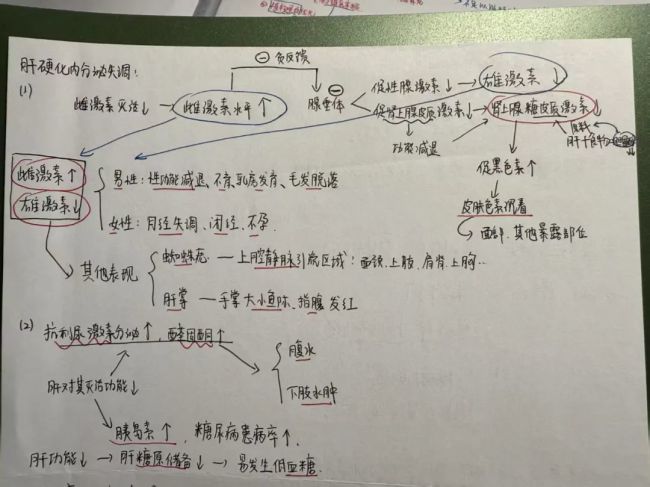 肝硬化内分泌失调:
(1)
⊖ 负反馈
雌激素灭活↓ → 雌激素水平↑
腺垂体
促性腺激素↓ → 雄激素↓
促肾上腺皮质激素↓ → 肾上腺糖皮质激素↓
功能减退
原料
肝中合成
促黑色素↑
皮肤色素沉着
面部、其他暴露部位
雌激素↑
雄激素↓
男性: 性功能减退、不育、乳房发育、毛发脱落
女性: 月经失调、闭经、不孕.
其他表现
蜘蛛痣 — 上腔静脉引流区域: 面颈、上肢、肩背、上胸…
肝掌 — 手掌大小鱼际、指腹发红
(2) 抗利尿激素分泌↑, 醛固酮↑
腹水
下肢水肿
肝对其灭活功能↓
胰岛素↑, 糖尿病患病率↑.
肝功能↓ → 肝糖原储备↓ → 易发生低血糖.